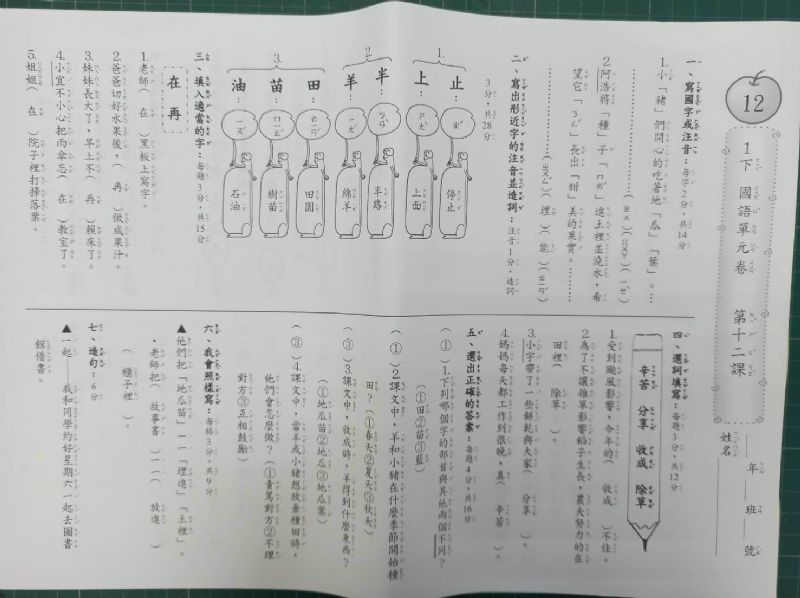 12
1下 國語單元卷 第十二課
年 班 號
姓名
一、寫國字或注音：每字2分，共14分
1.小「豬」們開心的吃著地「瓜」「葉」。
（ㄓㄨ）（ㄍㄨㄚ）（ㄧㄝˋ）
2.阿浩將「種」子「ㄇㄞˊ」進土裡並澆水，希
望它「ㄋㄥˊ」長出「甜」美的果實。
（ㄓㄨㄥˇ）（埋）（能）（ㄊㄧㄢˊ）
二、寫出形近字的注音並造詞：注音1分，造詞
3分，共28分
1. 止：ㄓˇ 停止
上：ㄕㄤˋ 上面
2. 半：ㄅㄢˋ 半路
羊：ㄧㄤˊ 綿羊
3. 田：ㄊㄧㄢˊ 田園
苗：ㄇㄧㄠˊ 樹苗
油：ㄧㄡˊ 石油
三、填入適當的字：每題3分，共15分
在 再
1.老師（在）黑板上寫字。
2.爸爸切好水果後，（再）做成果汁。
3.妹妹長大了，早上不（再）賴床了。
4.小宜不小心把雨傘忘（在）教室了。
5.姐姐（在）院子裡打掃落葉。
四、選詞填寫：每題3分，共12分
辛苦 分享 收成 除草
1.受到颱風影響，今年的（收成）不佳。
2.為了不讓雜草影響稻子生長，農夫努力的在
田裡（除草）。
3.小宇帶了一些餅乾與大家（分享）。
4.媽媽每天都工作到很晚，真（辛苦）。
五、選出正確的答案：每題4分，共16分
（①）1.下列哪個字的部首與其他兩個不同？
（①田②苗③藍）
（①）2.課文中，羊和小豬在什麼季節開始種
田？（①春天②夏天③秋天）
（③）3.課文中，收成時，羊得到什麼東西？
（①地瓜苗②地瓜③地瓜葉）
（③）4.課文中，當羊或小豬想放棄種田時，
他們會怎麼做？（①責罵對方②不理
對方③互相鼓勵）
六、我會照樣寫：每格3分，共9分
▲他們把「地瓜苗」一一「埋進」「土裡」。
・老師把（故事書）一一（放進）
（櫃子裡）。
七、造句：6分
▲一起——我和同學約好星期六一起去圖書
館借書。